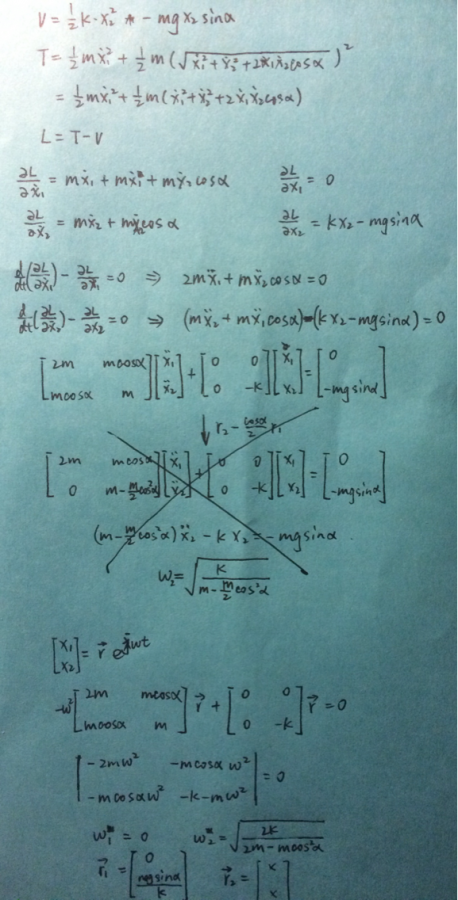 V = 1/2 k·x₂² - mg x₂ sinα
T = 1/2 mẋ₁² + 1/2 m(√(ẋ₁² + ẋ₂² + 2ẋ₁ẋ₂cosα))²
= 1/2 mẋ₁² + 1/2 m(ẋ₁² + ẋ₂² + 2ẋ₁ẋ₂cosα)
L = T - V
∂L/∂ẋ₁ = mẋ₁ + mẋ₁ + mẋ₂ cosα    ∂L/∂x₁ = 0
∂L/∂ẋ₂ = mẋ₂ + mẋ₁cosα    ∂L/∂x₂ = kx₂ - mgsinα
d/dt(∂L/∂ẋ₁) - ∂L/∂x₁ = 0 ⇒ 2mẍ₁ + mẍ₂cosα = 0
d/dt(∂L/∂ẋ₂) - ∂L/∂x₂ = 0 ⇒ (mẍ₂ + mẍ₁cosα) - (kx₂ - mgsinα) = 0
[2m mcosα; mcosα m][ẍ₁; ẍ₂] + [0 0; 0 -k][x₁; x₂] = [0; -mgsinα]
↓ r₂ - cosα/2 r₁
[2m mcosα; 0 m - m/2 cos²α][ẍ₁; ẍ₂] + [0 0; 0 -k][x₁; x₂] = [0; -mgsinα]
(m - m/2 cos²α)ẍ₂ - k x₂ = -mgsinα.
ω₂ = √(k/(m - m/2 cos²α))
[x₁; x₂] = r⃗ e^jωt
-ω²[2m mcosα; mcosα m] r⃗ + [0 0; 0 -k] r⃗ = 0
|-2mω² -mcosα ω²; -mcosα ω² -k - mω²| = 0
ω₁ = 0    ω₂ = √(2k/(2m - mcos²α))
r⃗₁ = [0; mgsinα/k]    r⃗₂ = [x; x]